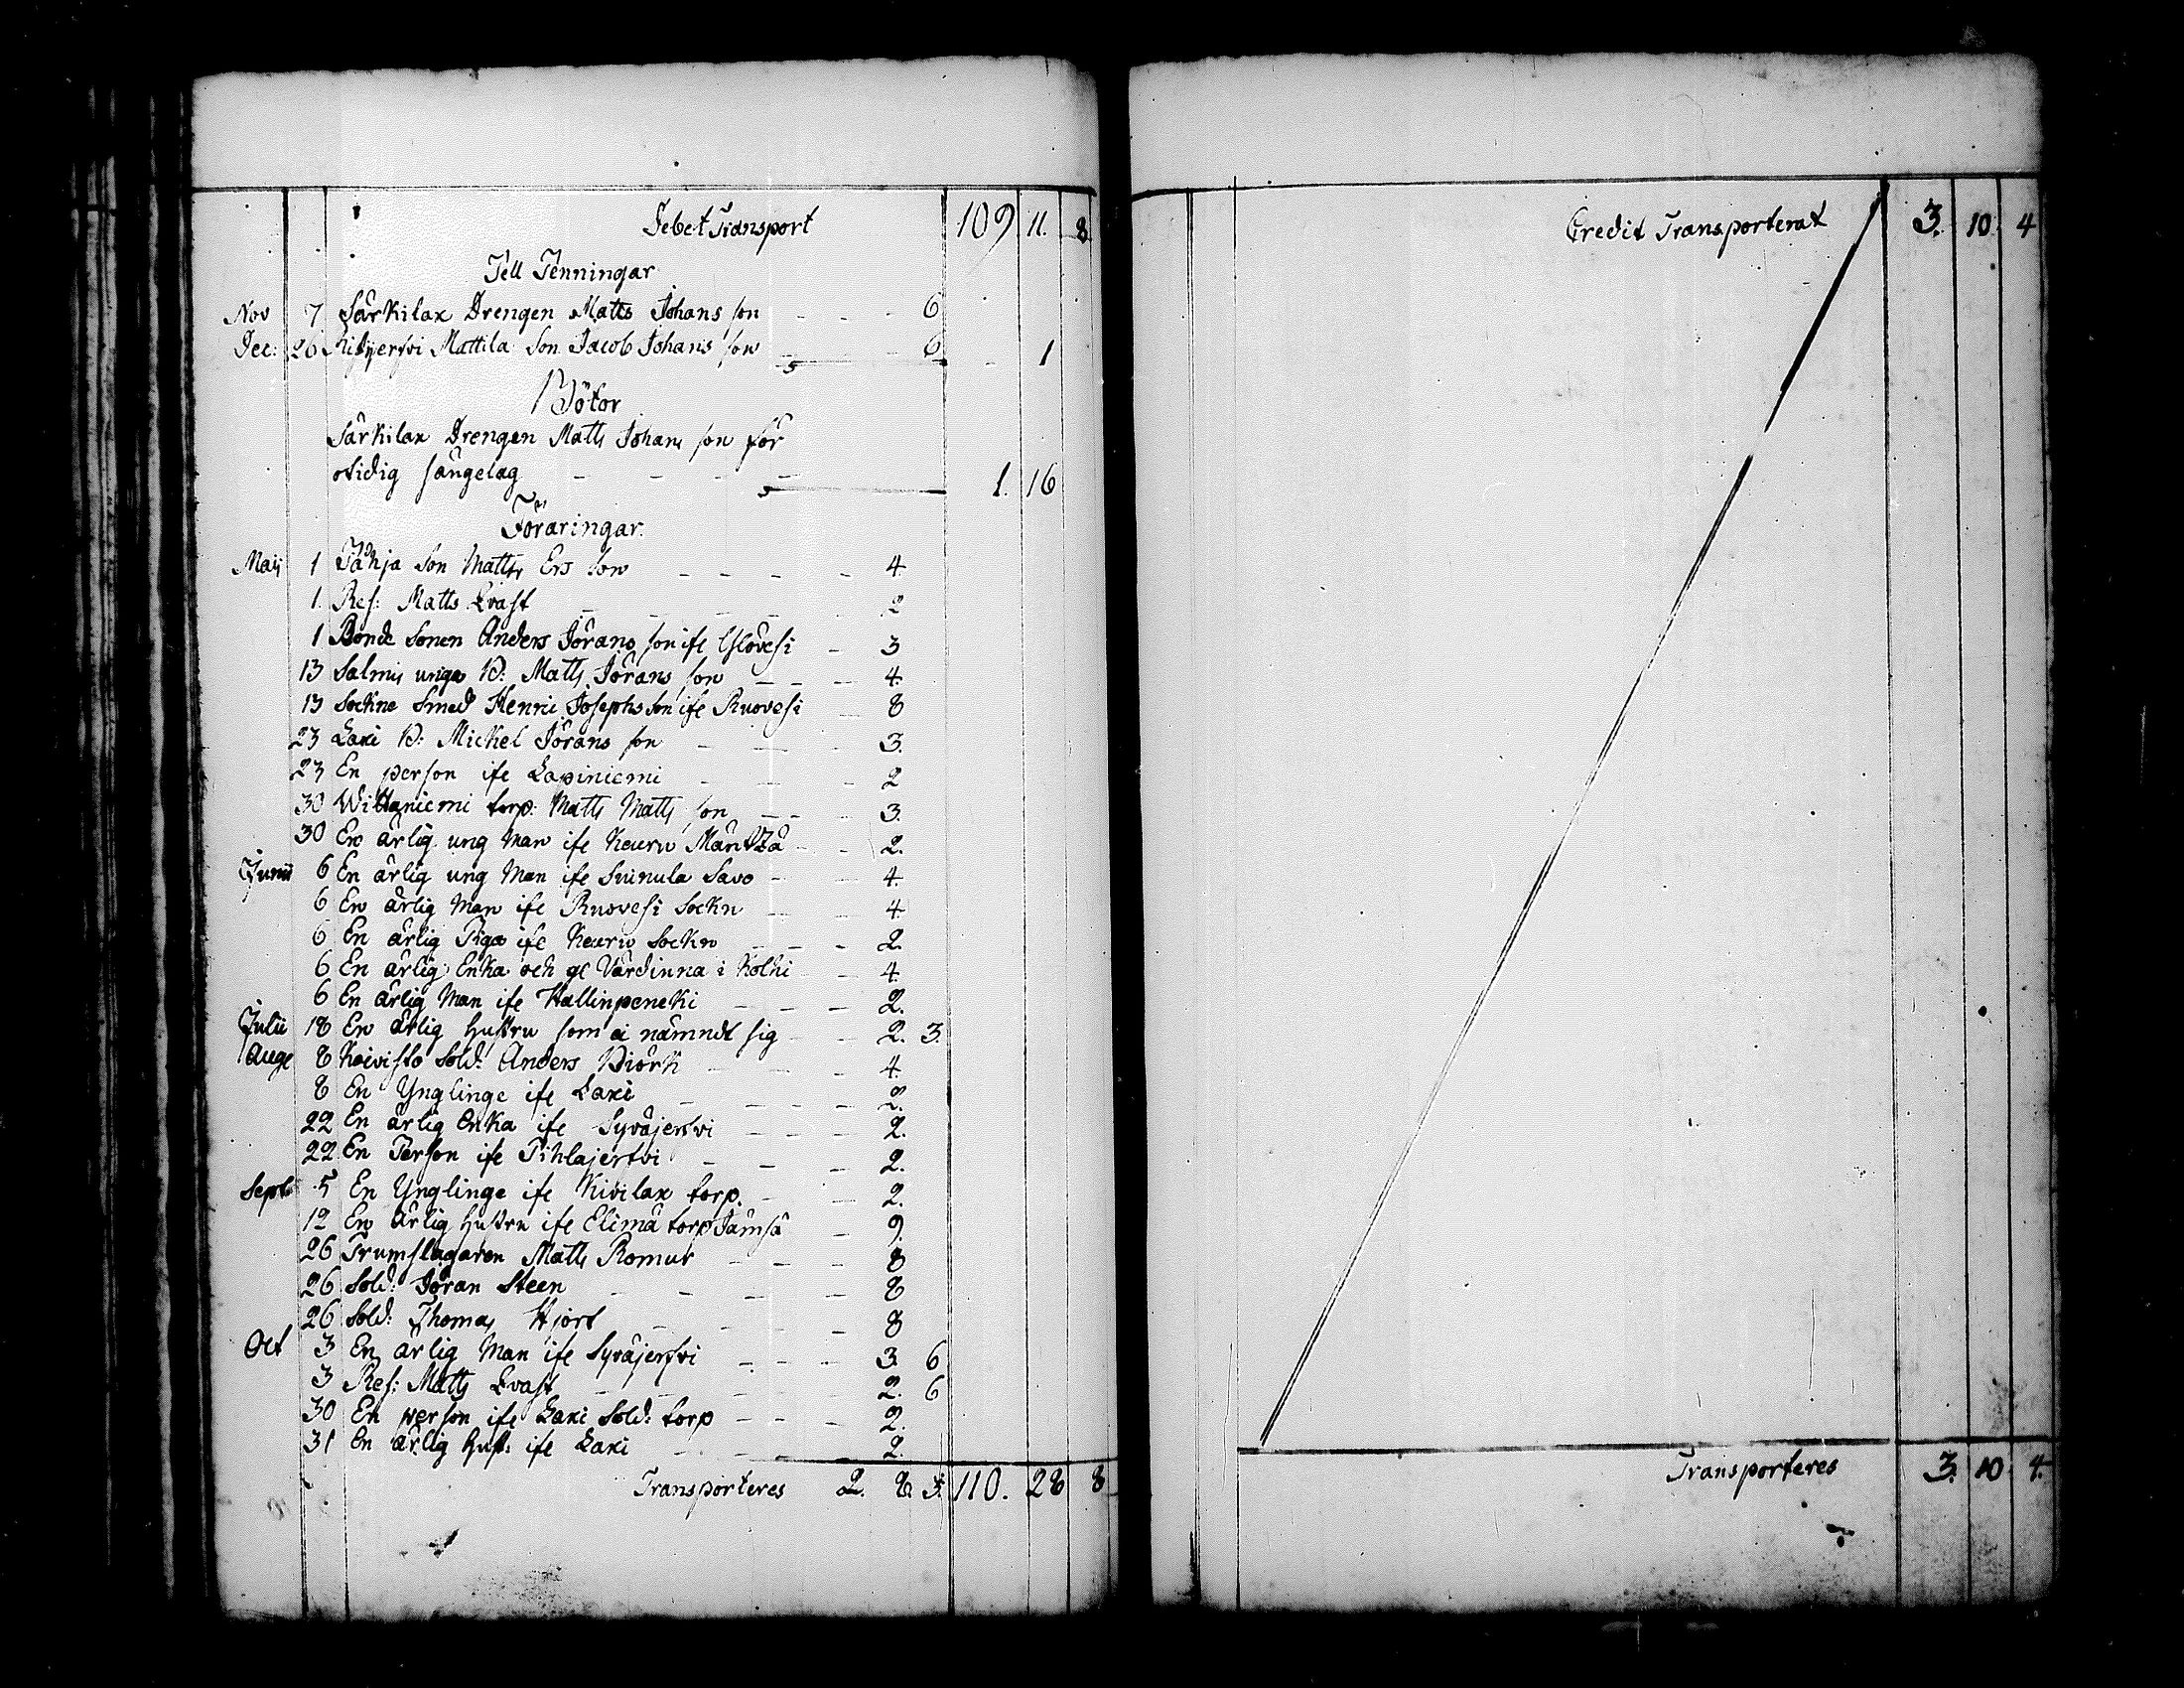 Debet Transport 109 11. 8.
Tell Tenningar
Nov 7 Särkilax Drengen Matts Johans son - - - 6
Dec: 26 Mattila Son Jacob Johans son - - - 6 - 1
Bötor
Särkilax Drengen Matts Johans son för
otidig sängelag - - - - 1. 16
Föraringar
Maij 1 Pähja Son Matts Ers son - - - - 4.
1. Ref: Matts Qvast - - - - 2
1 Bonde Sonen Anders Jörans son ifr - 3
13 Salmis unga B: Matts Jörans son - - - 4.
13 Sockne Smed Henric Josephs son ifr Ruovesi - 8
23 Laxi B: Mickel Jörans son - - - - 3.
23 En person ifr Lapiniemi - - - 2
30 Wittaniemi torp: Matts Matts son - - - 3.
30 En ärlig ung Man ifr Keuru Mäntzä - - 2.
Junii 6 En ärlig ung Man ifr Savo - - 4.
6 En ärlig Man ifr Ruovesi Sockn - - 4.
6 En ärlig Piga ifr Keuru Sockn - - - 2.
6 En ärlig Enka och gl Värdinna i Kolhi - - 4
6 En ärlig Man ifr Hallinpencki - - - 2.
Julii 18 En ärlig hustru som ei nämndt sig - - 2. 3.
Aug 8 Koivisto Sold: Anders Biörk - - - 4.
8 En Ynglinge ifr Laxi - - - - 2.
22 En ärlig Enka ifr Syväjerfvi - - - 2.
22 En Person ifr Pihlajerfvi - - - 2.
Septb 5 En Ynglinge ifr Kivilax torp. - - - 2.
12 En ärlig hustru ifr Elimä torp Jämsä - 9.
26 Trumslagaren Matts Romur - - - 8
26 Sold: Jöran Steen - - - - 8
26 Sold: Thomas Hjort - - - - 8
Oct 3 En ärlig Man ifr Syväjerfvi - - - 3. 6
3 Ref: Matts Qvast - - - - 2. 6
30 En person ifr Laxi Sold: torp - - - 2.
31 En ärlig hust: ifr Laxi - - - 2.
Transporteres 2. 8. 3. 110. 28 8
Credit Transporterat 3. 10. 4
Transporteres 3. 10 4.